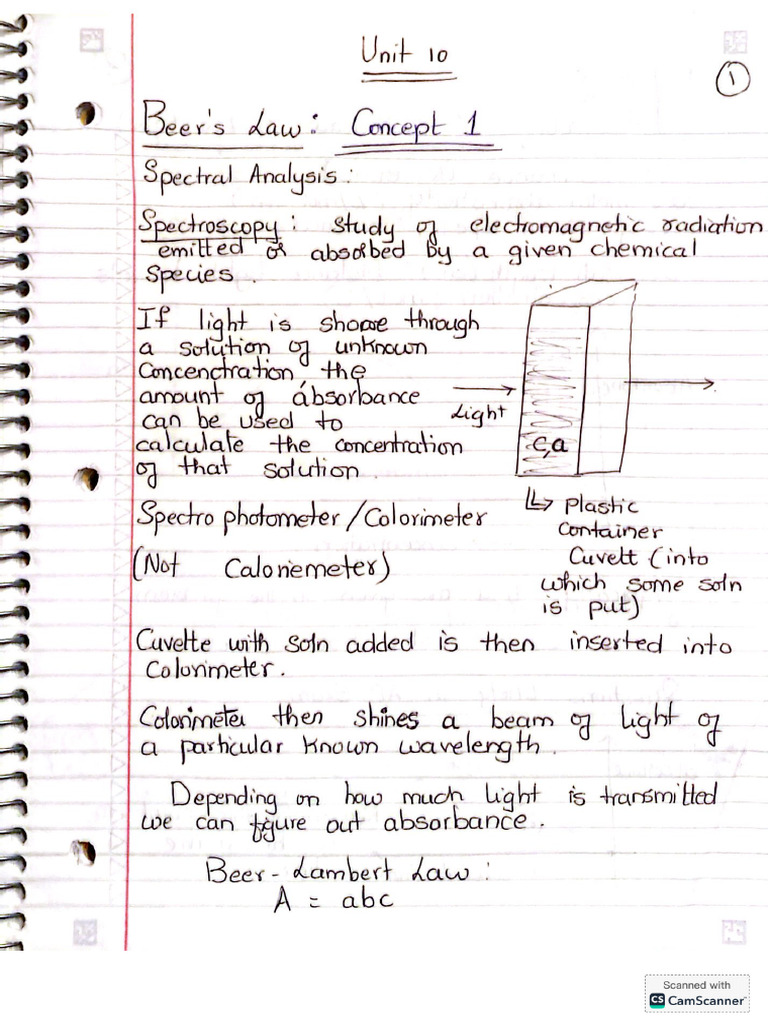 Unit 10
1
Beer's Law: Concept 1
Spectral Analysis:
Spectroscopy: study of electromagnetic radiation
emitted or absorbed by a given chemical
species.
If light is shone through
a solution of unknown
Concenctration, the
amount of absorbance
can be used to
calculate the concentration
of that solution.
Light
c,a
↳ Plastic
container
Cuvett (into
which some soln
is put)
Spectro photometer/Colorimeter
(Not Caloriemeter)
Cuvette with soln added is then inserted into
Colorimeter.
Colorimeter then shines a beam of light of
a particular known wavelength.
Depending on how much light is transmitted
we can figure out absorbance.
Beer-Lambert Law:
A = abc
Scanned with
CS CamScanner